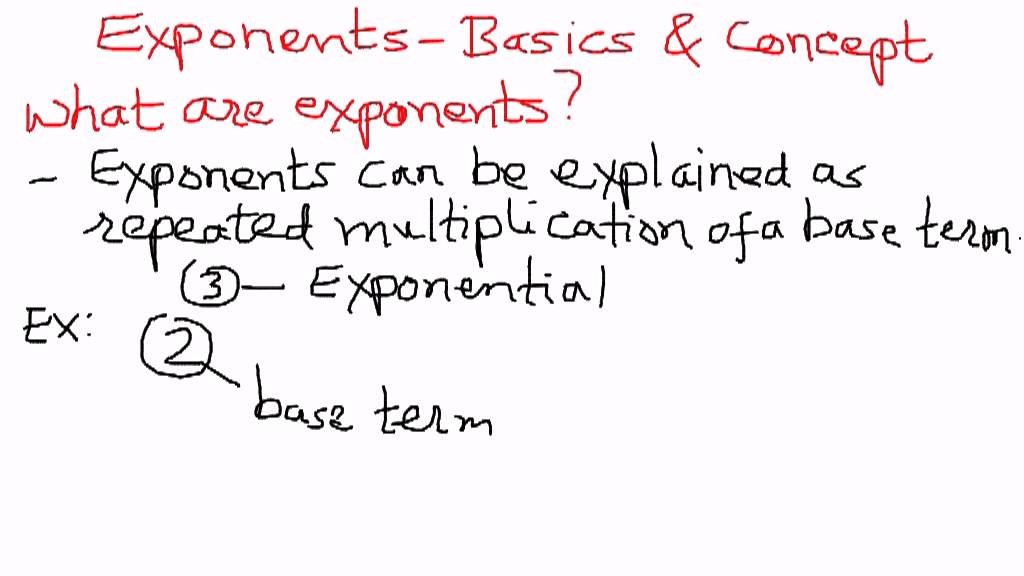 Exponents - Basics & Concept
what are exponents?
- Exponents can be explained as
repeated multiplication of a base term.
3 - Exponential
Ex: 2
base term